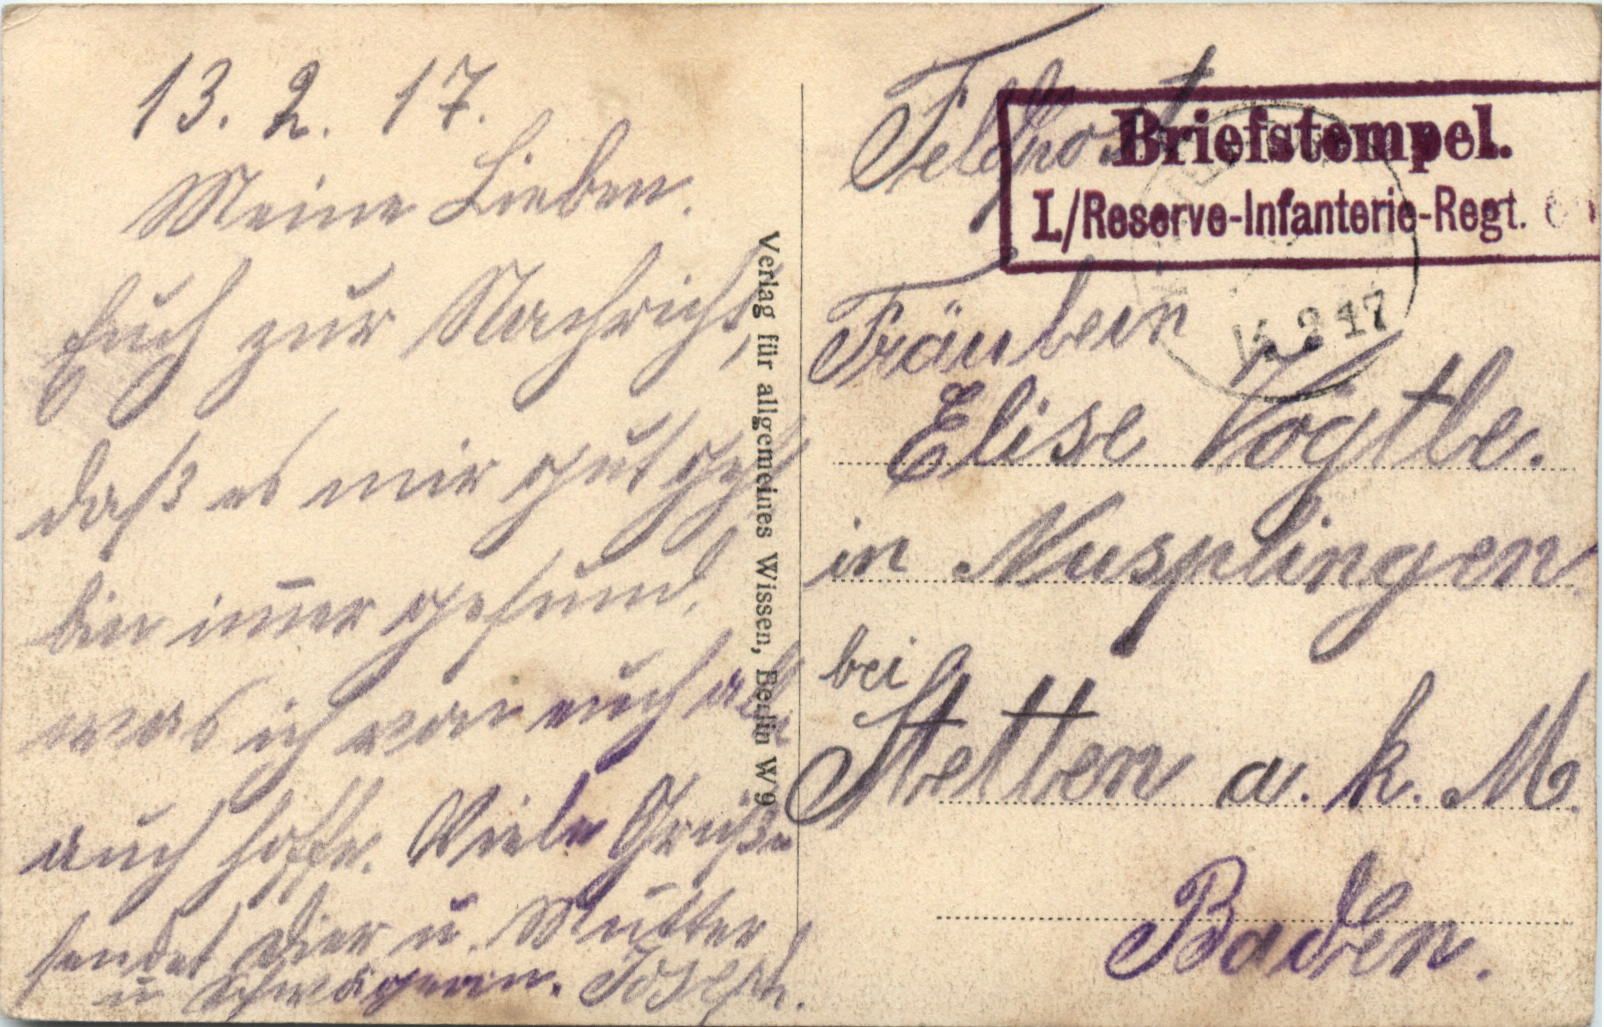 13. 2. 17.
Meine Lieben.
Euch zur Nachricht,
daß es mir gut geht
bin im̅er gesund,
was ich von euch all
auch hoffe. Viele Grüße
sendet Dier u. Mutter
u Schwägerin. Joseph.
Verlag für allgemeines Wissen, Berlin W 9
Feldpost
Briefstempel.
I./Reserve-Infanterie-Regt.
14.2.17
Fräulein
Elise Vögtle.
in Nusplingen
bei
Stetten a. k. M.
Baden.